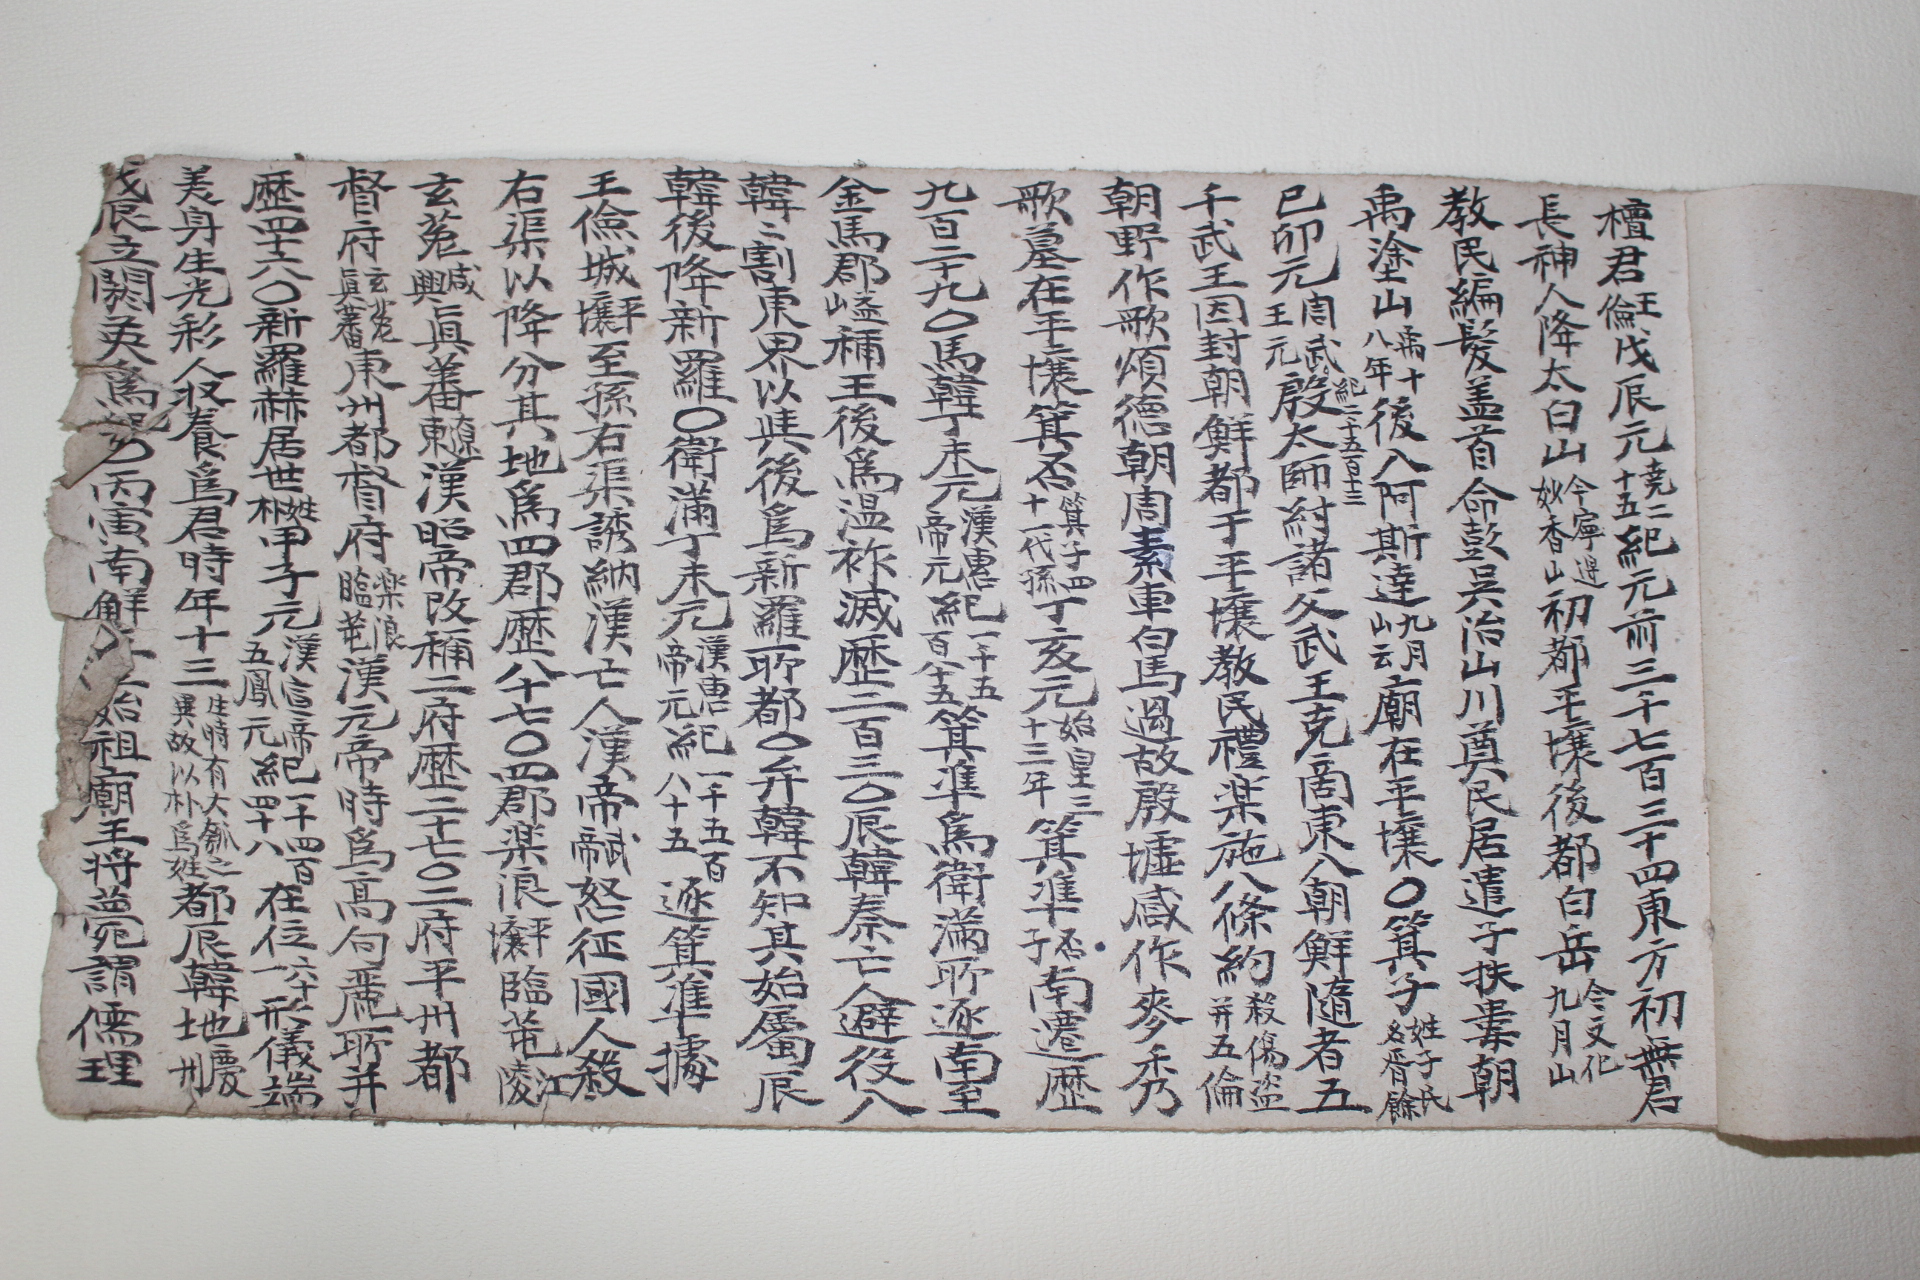 檀君王儉戊辰元堯二十五紀元前三千七百三十四東方初無君
長神人降太白山今寧邊妙香山初都平壤後都白岳今文化九月山
教民編髮盖首命彭吳治山川奠民居遣子扶婁朝
禹塗山禹十八年後入阿斯達九月山云廟在平壤〇箕子姓子氏名胥餘
己卯元周武王元紀二千五百十三殷太師紂諸父武王克商東入朝鮮隨者五
千武王因封朝鮮都于平壤教民禮楽施八條約殺傷盗并五倫
朝野作歌頌德朝周素車白馬過故殷墟咸作麥秀
歌墓在平壤箕否箕子四十一代孫丁亥元始皇三十三年箕準否子南遷歷
九百二十九〇馬韓丁未元漢惠帝元紀一千五百八十五箕準為衛滿所逐南至
金馬郡益稱王後為温祚滅歷二百三〇辰韓秦亡人避役入
韓〻割東界以與後為新羅所都〇弁韓不知其始屬辰
韓後降新羅〇衛滿丁未元漢惠帝元紀一千五百八十五逐箕準據
王儉城平壤至孫右渠誘納漢亡人漢帝武帝怒征國人殺
右渠以降分其地為四郡歷八十七〇四郡楽浪平壤臨芚江陵
玄菟咸興眞蕃遼東漢昭帝改稱二府歷二十七〇二府平州都
督府玄菟眞蕃東州都督府楽浪臨芚漢元帝時為高句麗所并
歷四十六〇新羅赫居世姓朴甲子元漢宣帝五鳳元紀一千四百四十八在位六十一形儀端
美身生光彩人収養為君時年十三生時有大瓠之異故以朴為姓都辰韓地慶州
戊辰立閼英為妃丙寅南解立始祖廟王將薨謂儒理